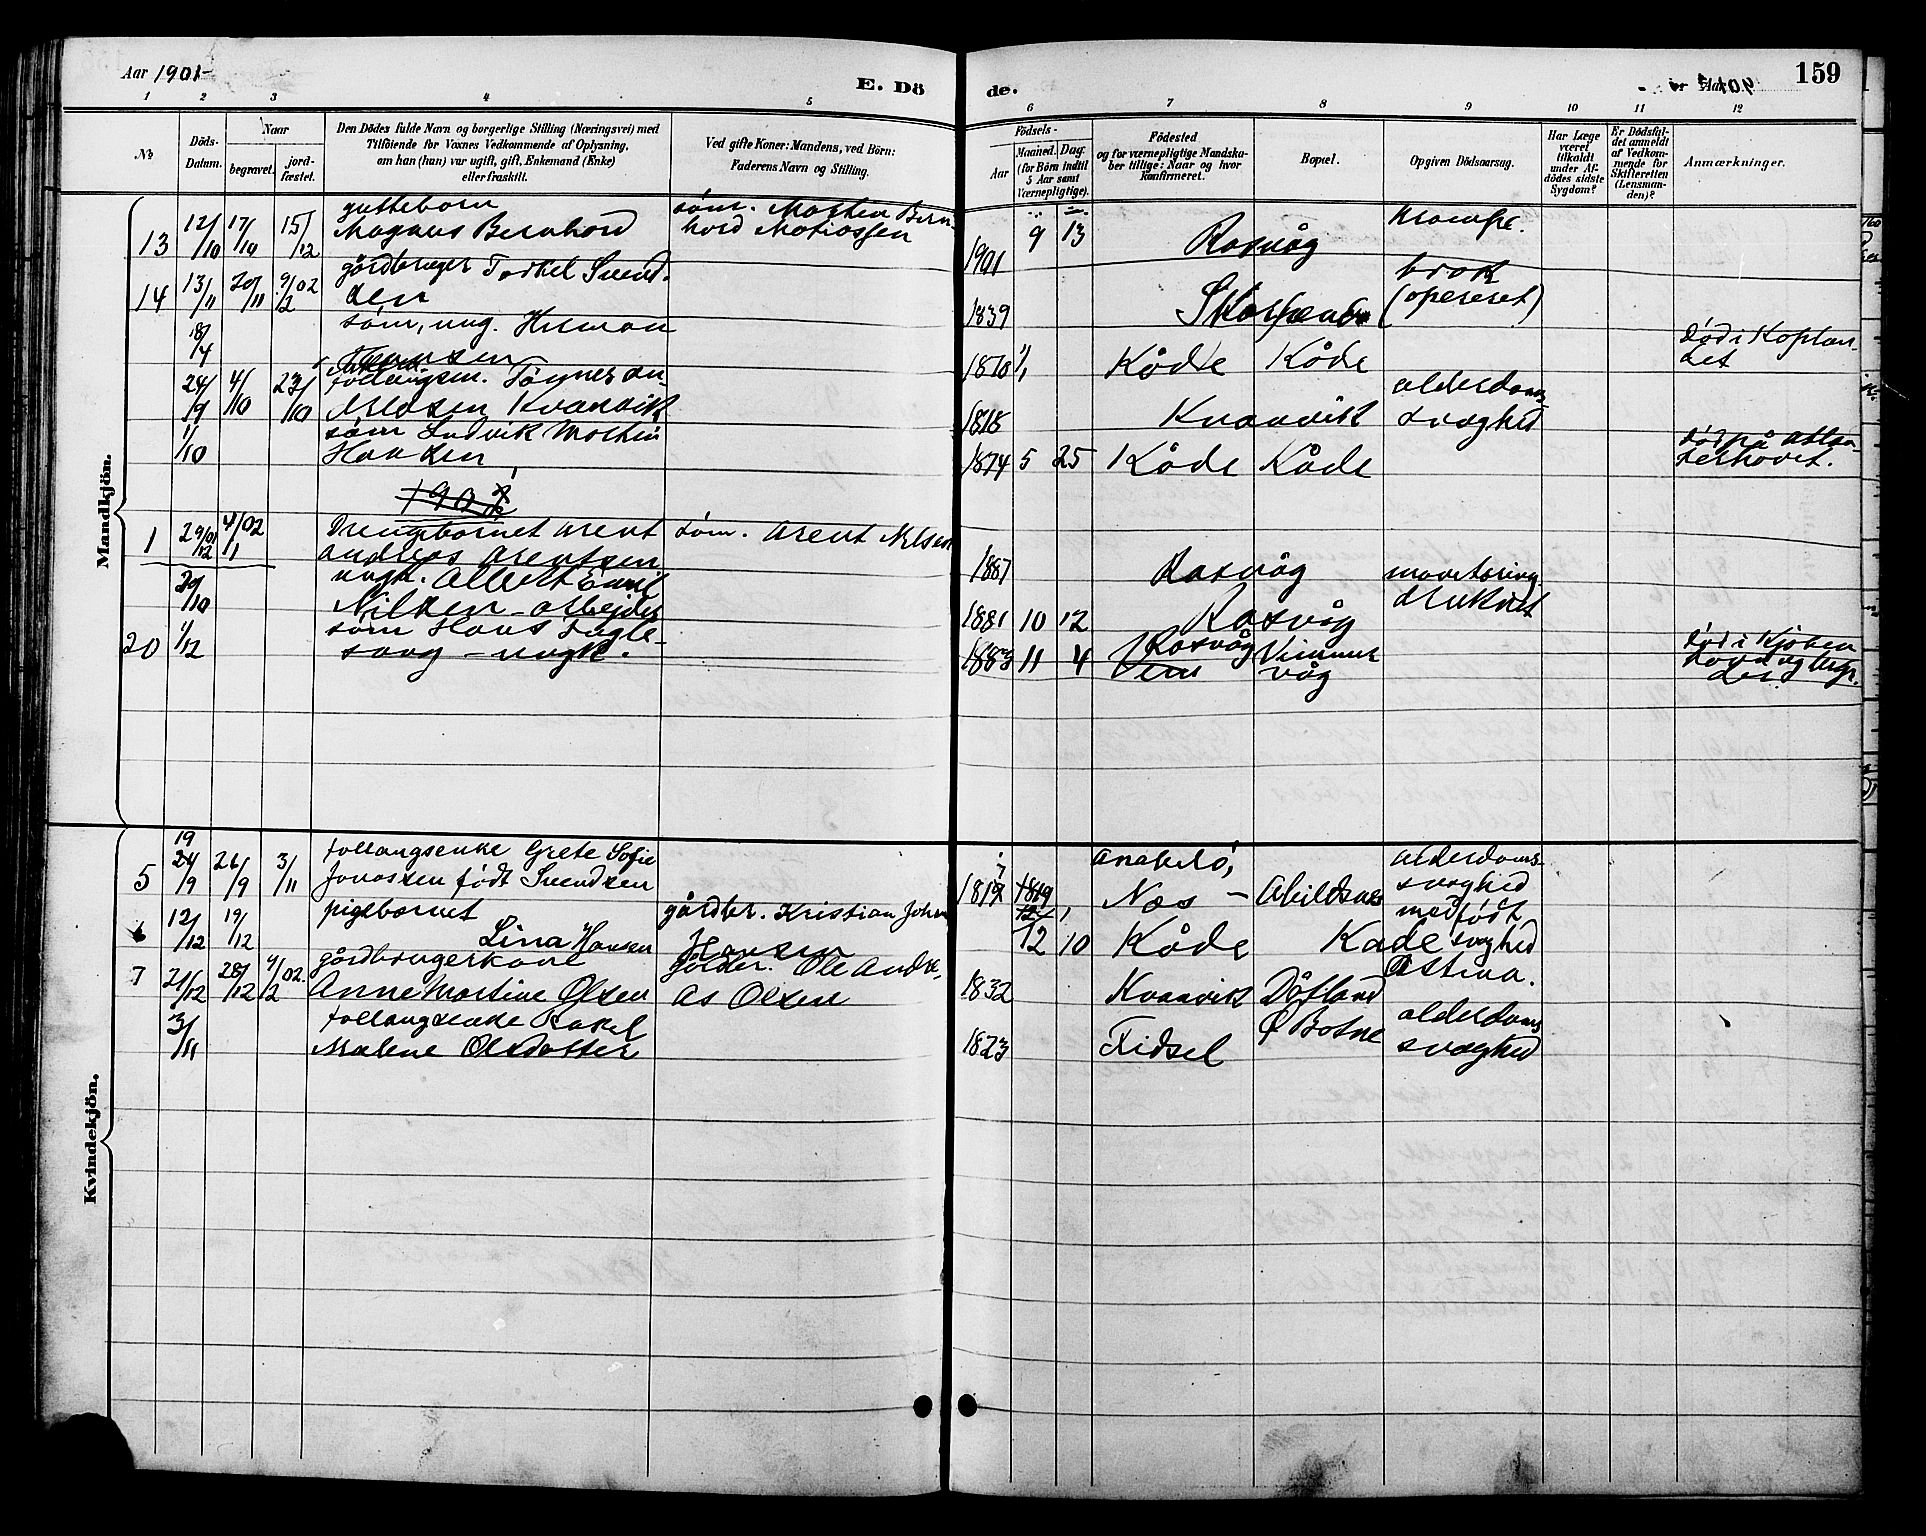 Aar 1901-
E. Dö
de.
159
1 2 3 4 5
6 7 8 9 10 11 12
No
Döds-
Datum.
Naar
begravet.
jord-
fæstet.
Den Dödes fulde Navn og borgerlige Stilling (Næringsvei) med
Tilföiende for Voxnes Vedkommende af Oplysning,
om han (hun) var ugift, gift, Enkemand (Enke)
eller fraskilt.
Ved gifte Koner: Mandens, ved Börn:
Faderens Navn og Stilling.
Födsels-
Aar
Maaned. Dag.
(for Börn indtil
5 Aar samt
Værnepligtige).
Födested
og for værnepligtige Mandska-
ber tillige: Naar og hvor
Konfirmeret.
Bopæl.
Opgiven Dödsaarsag.
Har Læge
været
tilkaldt
under Af-
dödes sidste
Sygdom?
Er Dödsfal-
det anmeldt
af Vedkom-
mende for
Skifteretten
(Lensman-
den)?
Anmærkninger.
Mandkjön.
13 12/10 17/10 15/12 gutteborn
Magnus Bernhard
søm. Mortin Bern-
hard Matiassen
1901 9 13 Rasvåg krampe.
14 13/11 20/11 9/2 02 gårdbruger Torkel Svend-
sen
1839 brok
(operert)
18/4 søm, ung. Herman
Hansen
1870 1/1 Kåde Kåde
død i Kaplan-
det
24/9 4/10 23/10 follaugsm. Tönnes An-
Kvanvik
1818 Kvanvik alderdoms-
svaghed
1/10 søm Ludvik Martin
Hansen
1874 5 25 Kåde Kåde
død på Atlan-
terhavet.
1 29/12 01 4/1 02 Drengebornet Arent
Andreas Arentsen
søm. Arent Nilsen
1887 Rasvåg
20/10 ungk. Albert Emil
Nilsen - arbejder
1881 10 12 Rasvåg druknet
20 1/12 søm Hans Fugle-
sang - ungk.
1883 11 4 Rasvåg
våg
død i Kjøben
Kvindekjön.
19
5 24/9 26/9 3/11 follaugsenke Grete Sofie
Jonassen født Svendsen
1819 Anabelø,
Næs - Abildsnes
alderdoms-
svaghed
6 12/12 19/12 pigebornet
Lina Hansen
gårdbr. Kristian Johan
Hansen
12 10 Kåde Kåde
medfødt
svaghed
7 21/12 28/12 9/2 02. gårdbrugerkone
Anne Martine Olsen
gårdbr. Ole Andre-
as Olsen
1832 Kvanvik Dåtland
Astma.
3/11 follaugsenke Rakel
Malene Olsdatter
1823 Fidsel Ø Botne
alderdoms
svaghed